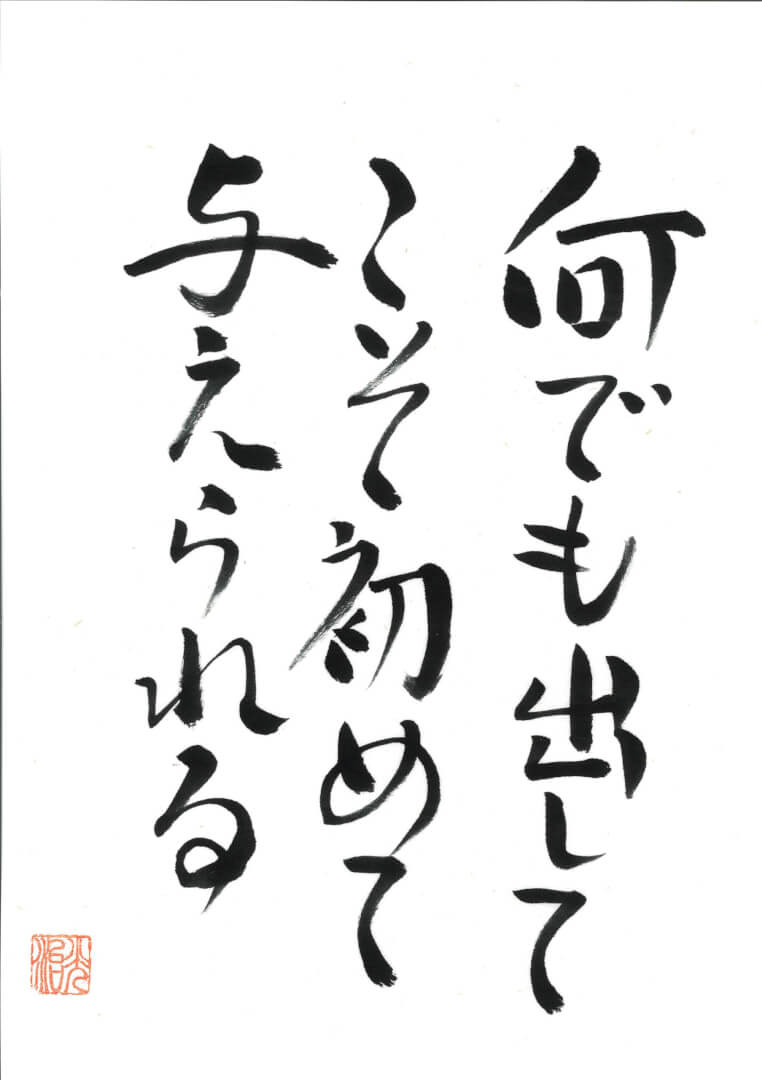 何でも出して
こそ初めて
与えられる